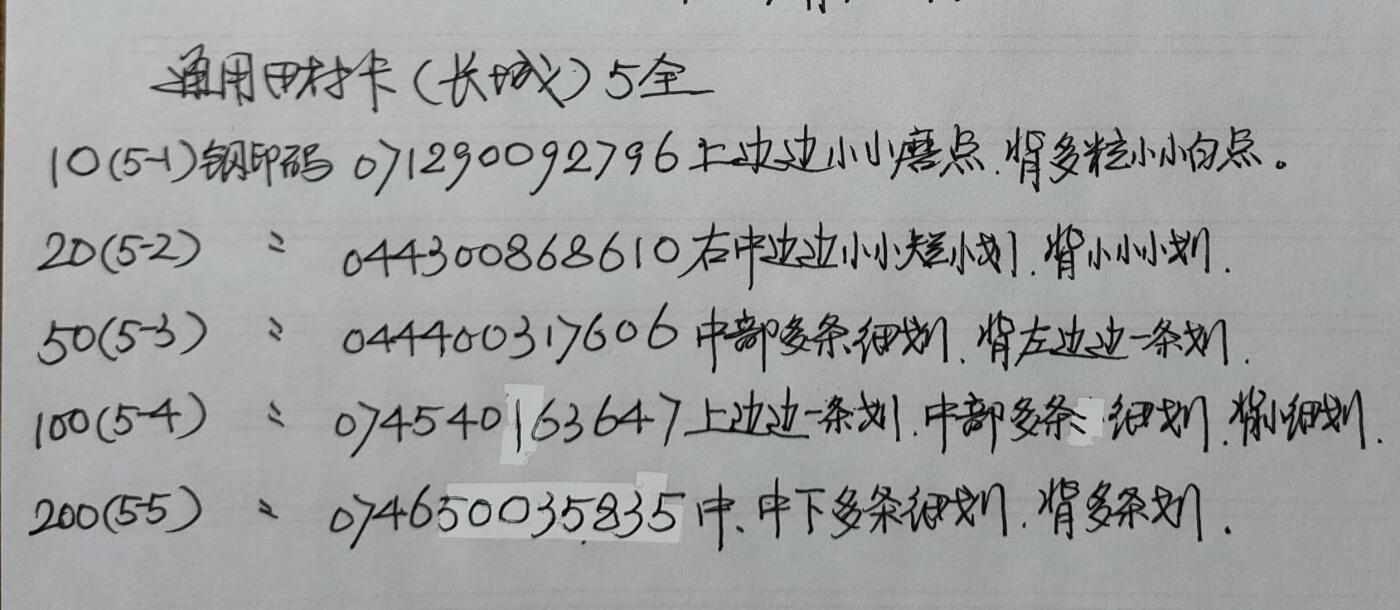 通用田村卡(长城)5全
10(5-1)钢印码 071290092796上边边小小磨点.背多粒小小白点。
20(5-2) 〃 044300868610右中边边小小短小划.背小小小划.
50(5-3) 〃 044400317606中部多条细划.背左边边一条划.
100(5-4) 〃 074540163647上边边一条划.中部多条细划.背小细划.
200(5-5) 〃 074650035835中、中下多条细划.背多条划.